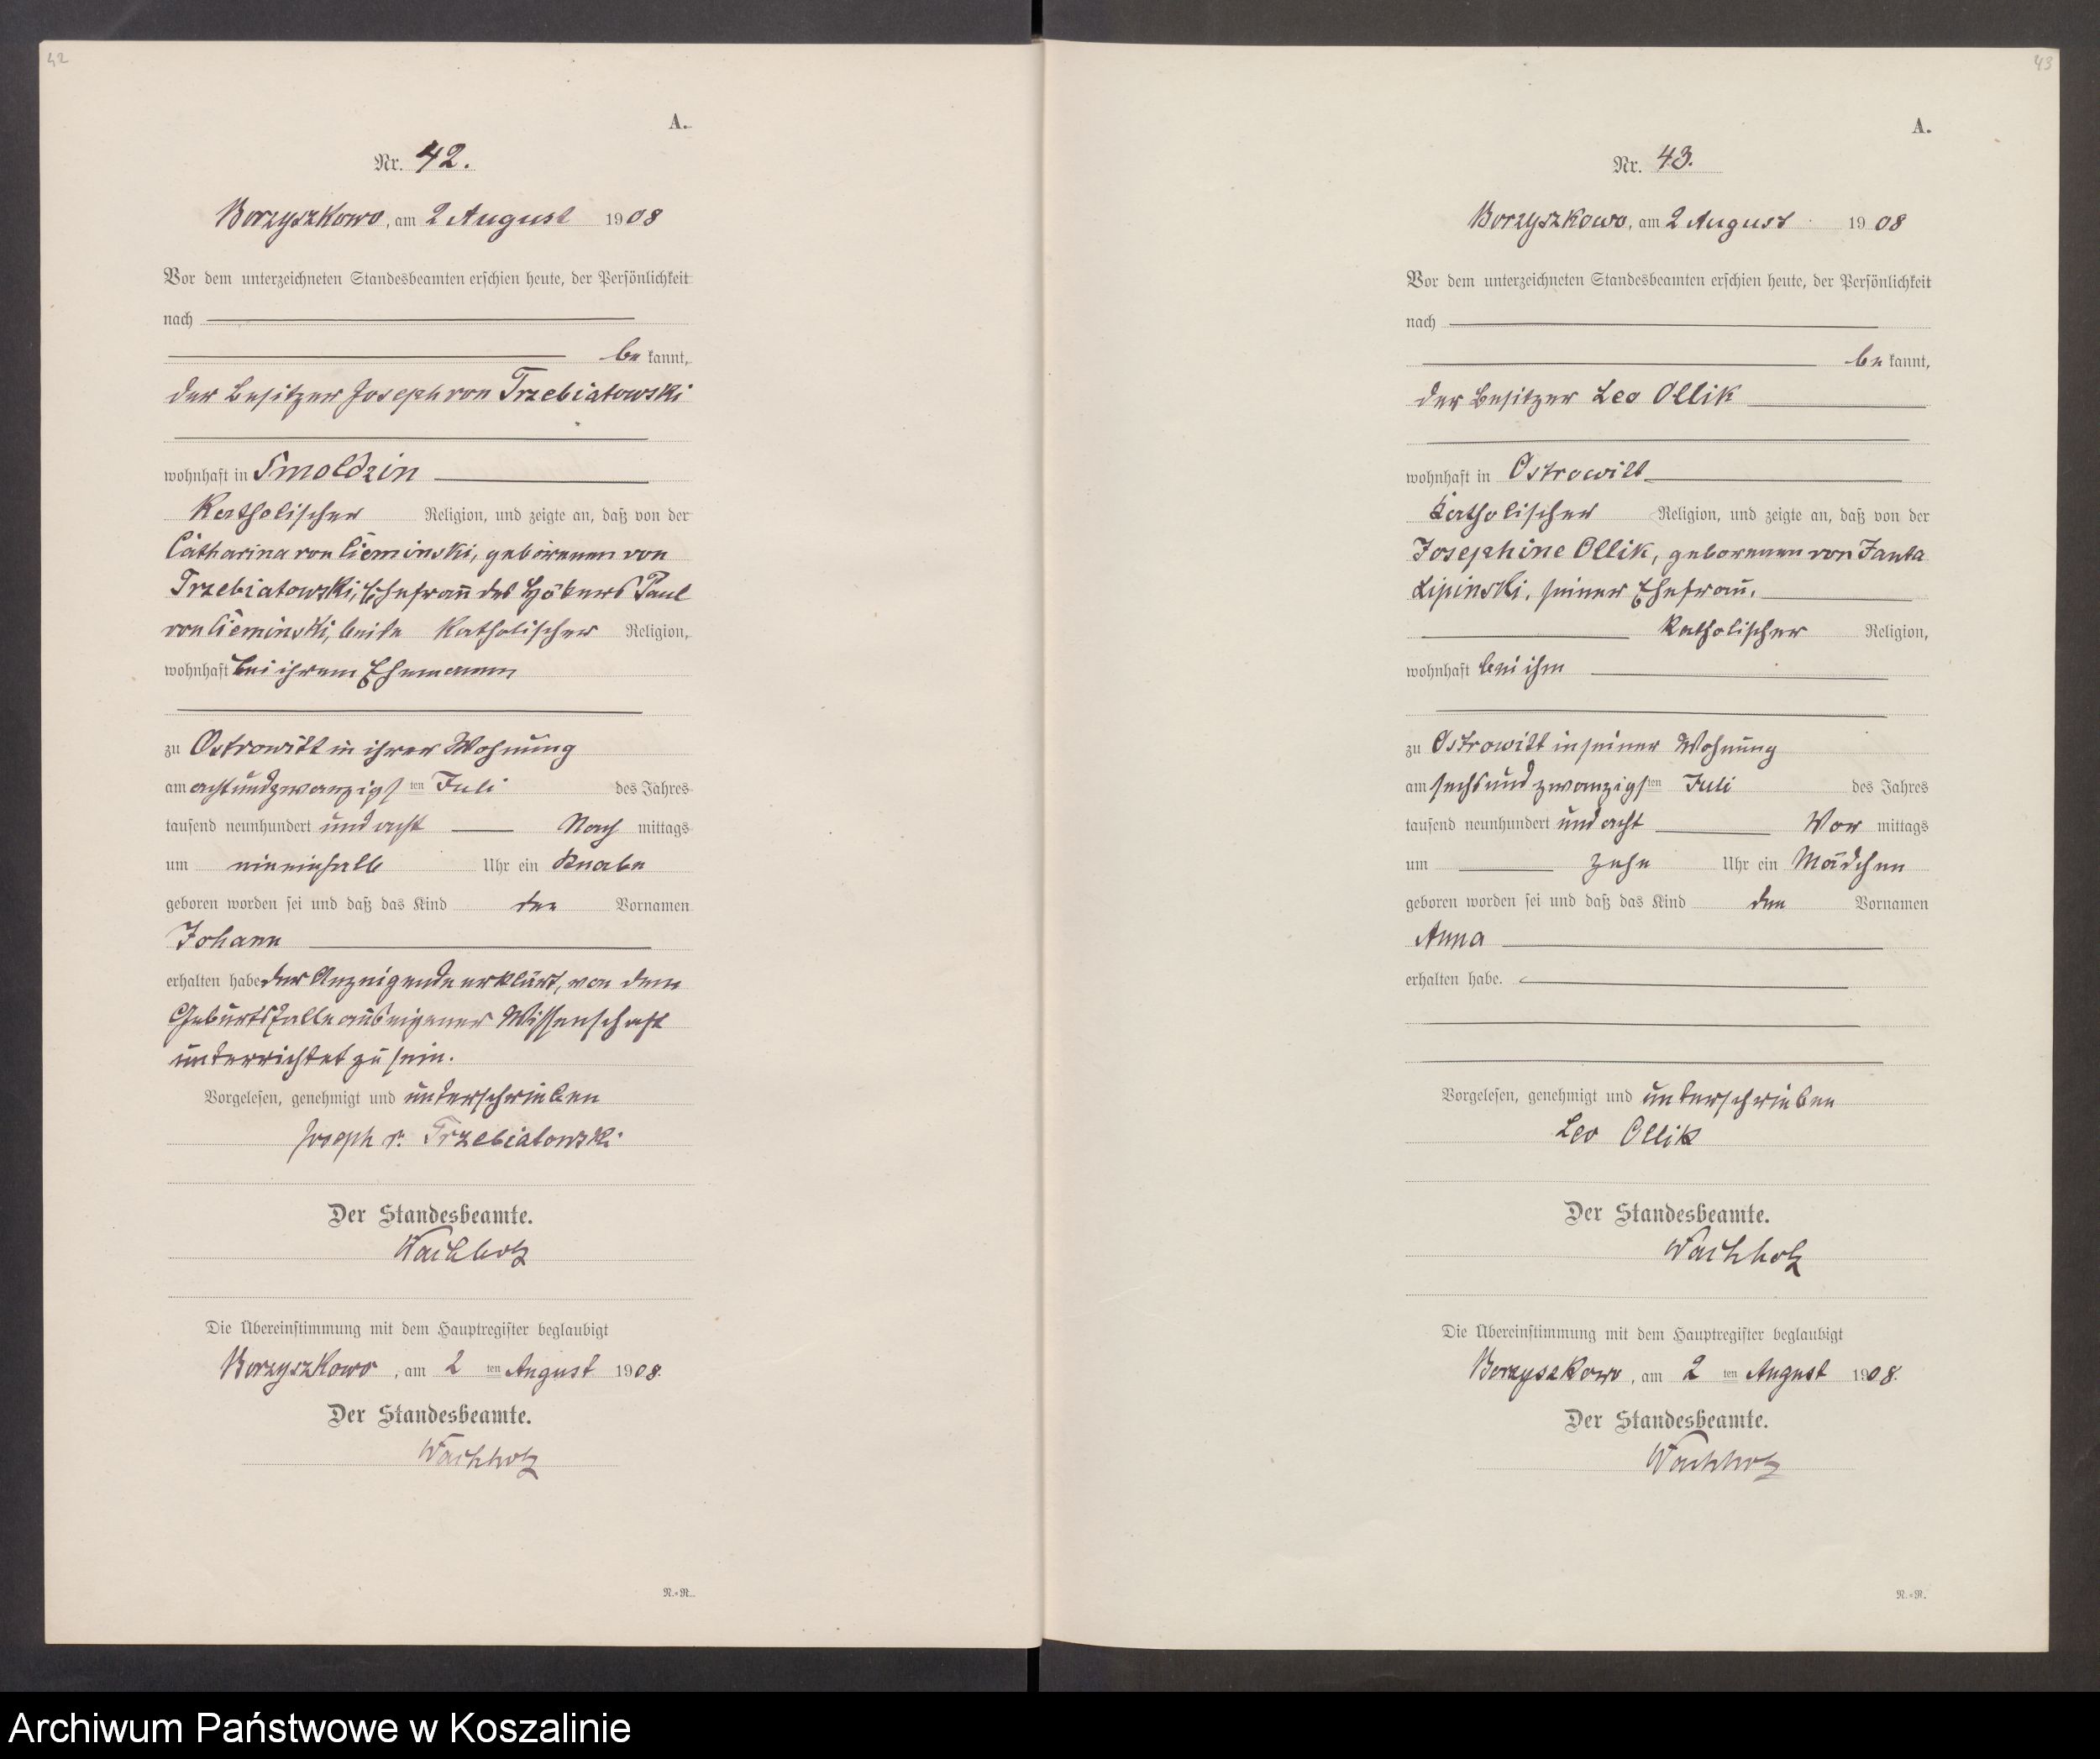 42
A.
Nr. 42.
Borzyszkowo, am 2 August 1908
Vor dem unterzeichneten Standesbeamten erschien heute, der Persönlichkeit
nach
be kannt,
der Besitzer Joseph von Trzebiatowski
wohnhaft in Smoldzin
Katholischer Religion, und zeigte an, daß von der
Catharina von Cieminski, geborenen von
Trzebiatowski, Ehefrau des Hökers Paul
von Cieminski, beide Katholischer Religion,
wohnhaft bei ihrem Ehemann
zu Ostrowitt in ihrer Wohnung
am achtundzwanzigsten Juli des Jahres
tausend neunhundert und acht Nach mittags
um eineinhalb Uhr ein Knabe
geboren worden sei und daß das Kind den Vornamen
Johann
erhalten habe der Anzeigende erklärt, von dem
Geburtsfalle aus eigener Wissenschaft
unterrichtet zu sein.
Vorgelesen, genehmigt und unterschrieben
Joseph v. Trzebiatowski
Der Standesbeamte.
Wachholz
Die Übereinstimmung mit dem Hauptregister beglaubigt
Borzyszkowo, am 2 ten August 1908.
Der Standesbeamte.
Wachholz
N.=R.
43
A.
Nr. 43.
Borzyszkowo, am 2 August 1908
Vor dem unterzeichneten Standesbeamten erschien heute, der Persönlichkeit
nach
be kannt,
der Besitzer Leo Ollik
wohnhaft in Ostrowitt
Katholischer Religion, und zeigte an, daß von der
Josephine Ollik, geborenen von Janta
Lipinski, seiner Ehefrau,
Katholischer Religion,
wohnhaft bei ihm
zu Ostrowitt in seiner Wohnung
am sechsundzwanzigsten Juli des Jahres
tausend neunhundert und acht Vor mittags
um zehn Uhr ein Mädchen
geboren worden sei und daß das Kind den Vornamen
Anna
erhalten habe.
Vorgelesen, genehmigt und unterschrieben
Leo Ollik
Der Standesbeamte.
Wachholz
Die Übereinstimmung mit dem Hauptregister beglaubigt
Borzyszkowo, am 2 ten August 1908.
Der Standesbeamte.
Wachholz
N.=R.
Archiwum Państwowe w Koszalinie